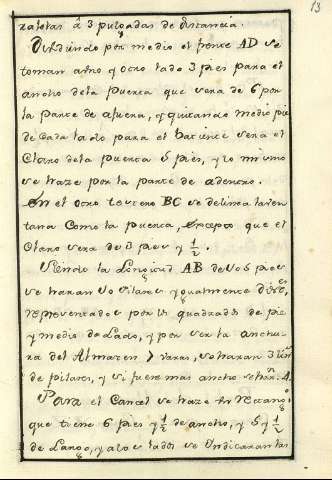 13
rafetas â 3 pulgadas de distancia.
Dividiendo por medio el frente AD se
toman a uno y otro lado 3 pies para el
ancho de la puerta que sera de 6 por
la parte de afuera, y quitando medio pie
de cada lado para el batiente sera el
Claro de la puerta 5 pies, y lo mismo
se haze por la parte de adentro.
En el otro testero BC se delinea la ven
tana Como la puerta, excepto que el
Claro sera de 3 pies y 1/2.
Siendo la Longitud AB de 
se haran pilares ygualmente 
representados por quadrados de pie
y medio de Lado, y por ser la anchu
ra del Almacen 7 varas, se haran 3
de pilares, y si fuere mas ancho se 4.
Para el Cancel se haze Un Rectang
que tiene 6 pies y 1/2 de ancho, y 5 y 1/2
de Largo, y a los lados se Yndicaran las